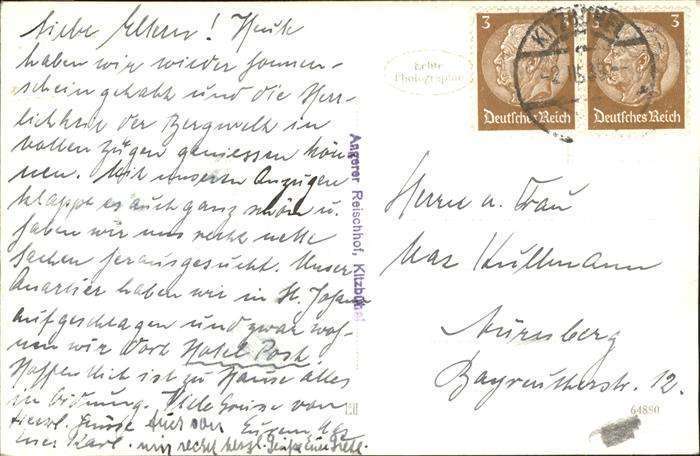 Liebe Eltern! Heute
haben wir wieder Sonnen-
schein gehabt und die Herr-
lichkeit der Bergwelt in
vollen Zügen geniessen kön-
nen. Mit unseren Anzügen
klappe es auch ganz schön u.
haben wir uns recht nette
Sachen herausgesucht. Unser
Quartier haben wir in St. Johann
aufgeschlagen und zwar woh-
nen wir dort Hotel Post.
Hoffentlich ist zu Hause alles
in Ordnung. Viele Grüsse von
Grüsse auch von Eurem
Karl. mir recht herzl. Grüsse Eure Gretl.
Angerer Reischhof, Kitzbühel
Echte
Photographie
3
3
KITZBÜHEL
Deutsches Reich
Deutsches Reich
Herrn u. Frau
Max Kullmann
Nürnberg
Bayreutherstr. 12.
64880